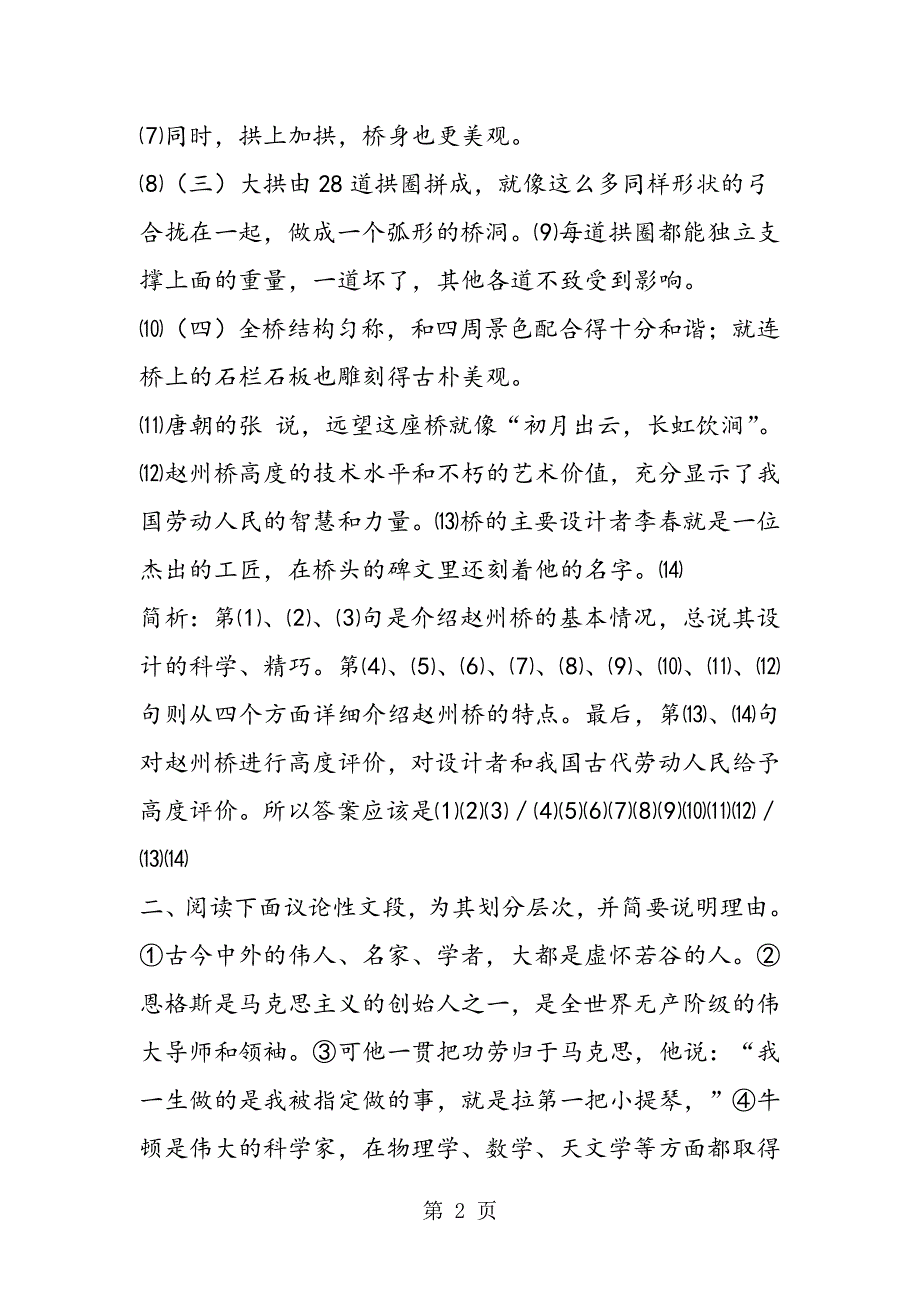 ⑺同时，拱上加拱，桥身也更美观。
⑻（三）大拱由 28 道拱圈拼成，就像这么多同样形状的弓
合拢在一起，做成一个弧形的桥洞。⑼每道拱圈都能独立支
撑上面的重量，一道坏了，其他各道不致受到影响。
⑽（四）全桥结构匀称，和四周景色配合得十分和谐；就连
桥上的石栏石板也雕刻得古朴美观。
⑾唐朝的张 说，远望这座桥就像“初月出云，长虹饮涧”。
⑿赵州桥高度的技术水平和不朽的艺术价值，充分显示了我
国劳动人民的智慧和力量。⒀桥的主要设计者李春就是一位
杰出的工匠，在桥头的碑文里还刻着他的名字。⒁
简析：第⑴、⑵、⑶句是介绍赵州桥的基本情况，总说其设
计的科学、精巧。第⑷、⑸、⑹、⑺、⑻、⑼、⑽、⑾、⑿
句则从四个方面详细介绍赵州桥的特点。最后，第⒀、⒁句
对赵州桥进行高度评价，对设计者和我国古代劳动人民给予
高度评价。所以答案应该是⑴⑵⑶／⑷⑸⑹⑺⑻⑼⑽⑾⑿／
⒀⒁
二、阅读下面议论性文段，为其划分层次，并简要说明理由。
①古今中外的伟人、名家、学者，大都是虚怀若谷的人。②
恩格斯是马克思主义的创始人之一，是全世界无产阶级的伟
大导师和领袖。③可他一贯把功劳归于马克思，他说：“我
一生做的是我被指定做的事，就是拉第一把小提琴，”④牛
顿是伟大的科学家，在物理学、数学、天文学等方面都取得
第 2 页